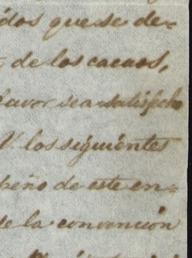 dos que se de-
de los casos,
favor sea satisfecho
V los siguientes
peño de este en-
se la convención